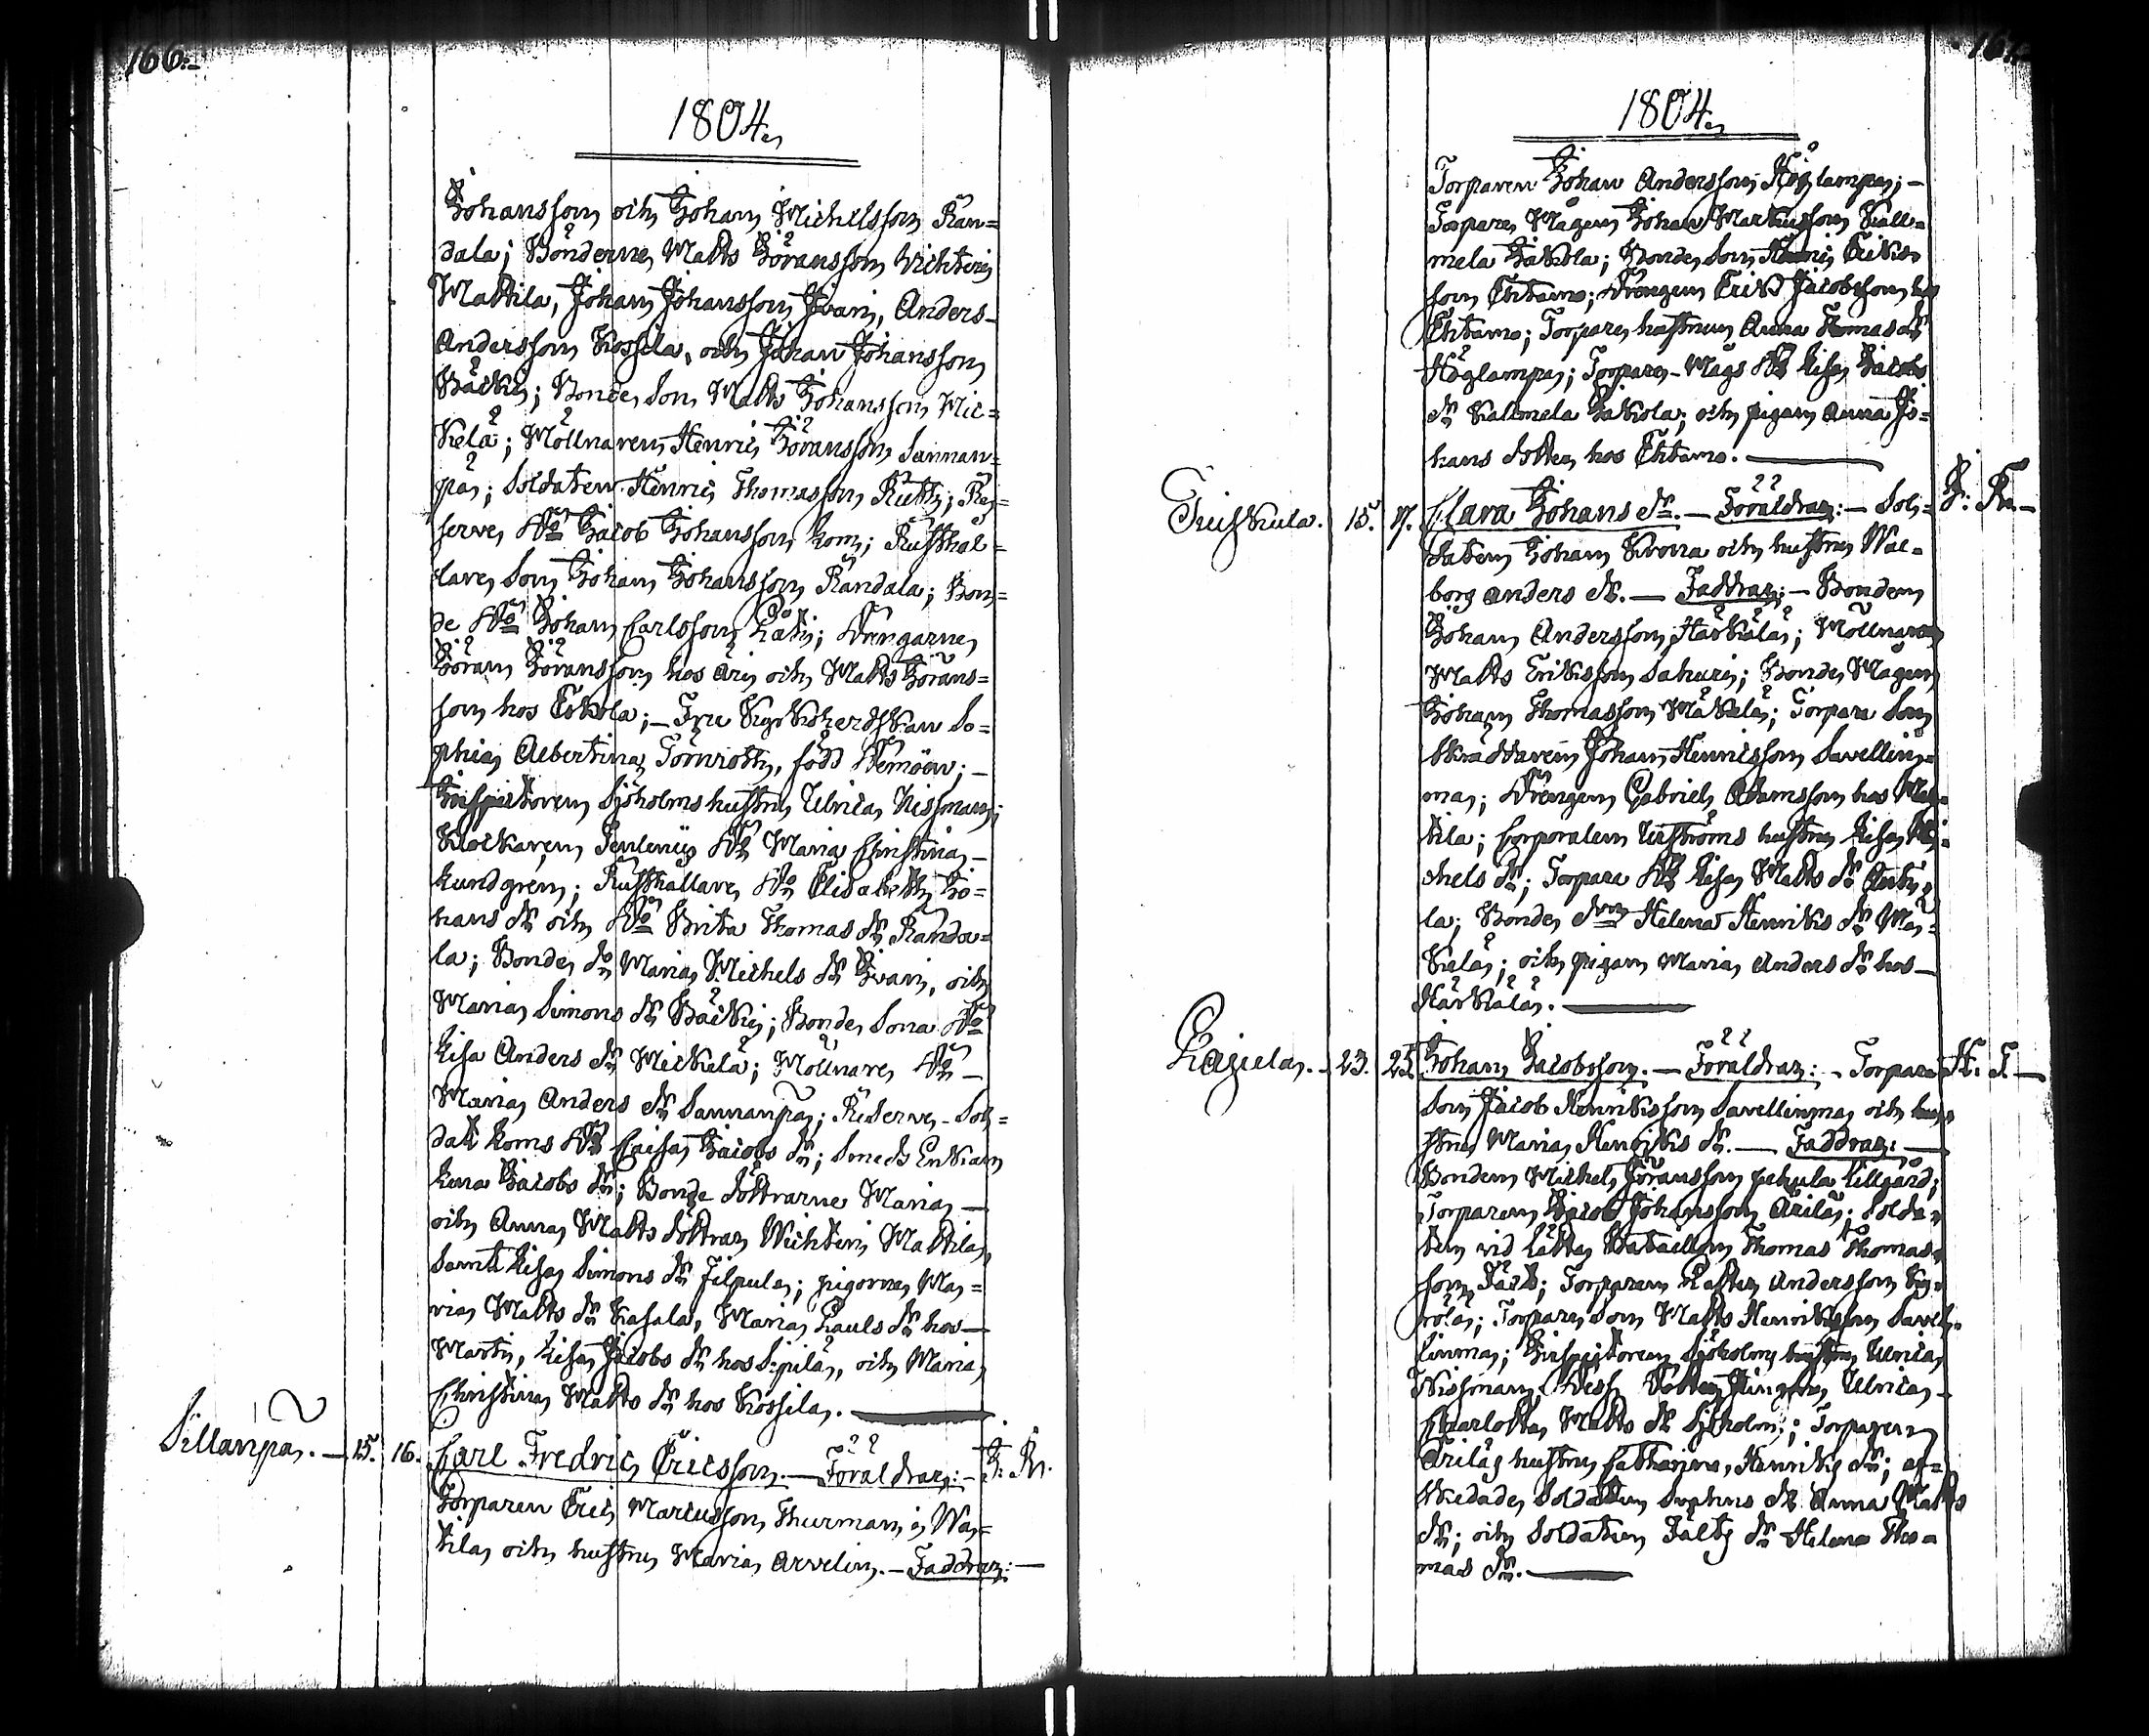 166.
1804.
Johansson och Johan Michelsson Ran=
dala; Bönderne Matts Göransson Wichteri
Mattila, Johan Johansson Ivari, Anders
Andersson Kossila, och Johan Johansson
Bäcki; Bonde Son Matts Johansson Mic=
kelä; Möllnaren Henric Göransson Sannan=
pä; Soldaten Henric Thomasson Rutth; Re=
serve Do Jacob Johansson Kom; Rusthål=
lare Son Johan Johansson Randala; Bon=
de Do Johan Carlsson; Drengarne
Göran Göransson hos Äri och Matts Görans=
son hos Eskola; - Fru Kyrkoherdskan So=
phia Albertina Törnroth, född;
Inspectoren Sjöholms hustru Ulrica Nissman;
Klockaren Do Maria Christina
Lundgren; Rusthållare Do Elisabeth Jo=
hans dr och Do Brita Thomas dr Randa=
la; Bonde do Maria Michels dr Ivari, och
Maria Simons dr Bäcki; Bonde Sona Do
Lisa Anders dr Mickelä; Möllnare Do
Maria Anders dr Sannanpä; Reserve Sol=
dat Koms Do Caisa Jacobs dr; Smeds Enkan
Lena Jacobs dr; Bonde döttrarne Maria
och Anna Matts döttrar Wichteri Mattila,
Samt Lisa Simons dr Filpula; pigorna Ma=
ria Matts dr Kasala, Maria Pauls dr hos
Martin, Lisa Jacobs dr hos Sipilä, och Maria
Christina Matts dr hos Kossila.
Sillanpä. 15. 16. Carl Fredric Ericsson. - Föräldrar: - J. Rn.
Torparen Eric Marcusson Thurman i Wa=
tila och hustru Maria Arvelin. - Faddrar: -
1804.
Torparen Johan Andersson Höglampa; -
Torpare Mågen Johan Markusson Kall=
mela Jakola; Bonde Son Henric Eriks=
son Ehtamo; Drengen Erik Jacobsson hos
Ehtamo; Torpare hustrun Anna Thomas dr
Höglampa; Torpare Mågs Do Lisa Jacobs
dr Kallmela Jakola; och pigan Anna Jo=
hans dotter hos Ehtamo.
15. 17. Clara Johans dr. - Föräldrar: - Sol= J. Rn.
daten Johan Krona och hustru Wal=
borg Anders dr. - Faddrar: - Bonden
Johan Andersson Härkälä; Möllnaren
Matts Eriksson Sahuri; Bonde Mågen
Johan Thomasson Mäkelä; Torpare Son
Skräddaren Johan Henricsson Savellin=
ma; Drengen Gabriel Adamsson hos Mat=
tila; Corporalen hustru Lisa Mi=
chels dr; Torpare Do Lisa Matts dr
la; Bonde Helena Henriks dr Mä=
kelä; och pigan Maria Anders dr hos
Härkälä.
23. 25. Johan Jacobsson. - Föräldrar: - Torpare H. F.
Son Jacob Henriksson Savellinma och hu=
stru Maria Henriks dr. - Faddrar: -
Bonden Michel Göransson Pekula Lillgård;
Torparen Jacob Johansson Ärilä; Solda=
ten vid Lätta Bataillon Thomas Thomas=
son Fält; Torparen Andersson Ky=
rölä; Torpare Son Matts Henriksson Savel=
linma; Inspectoren Sjöholms hustru Ulrica
Nissman, Dess Dotter Ulrica
Charlotta Matts dr Sjöholm; Torparen
Äriläs hustru Catharina Henriks dr; af=
skedade Soldaten dr Anna Matts
dr; och Soldaten Fälts dr Helena Tho=
mas dr.